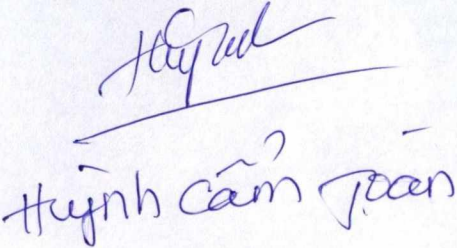 Huỳnh
Huỳnh Cẩm Toàn